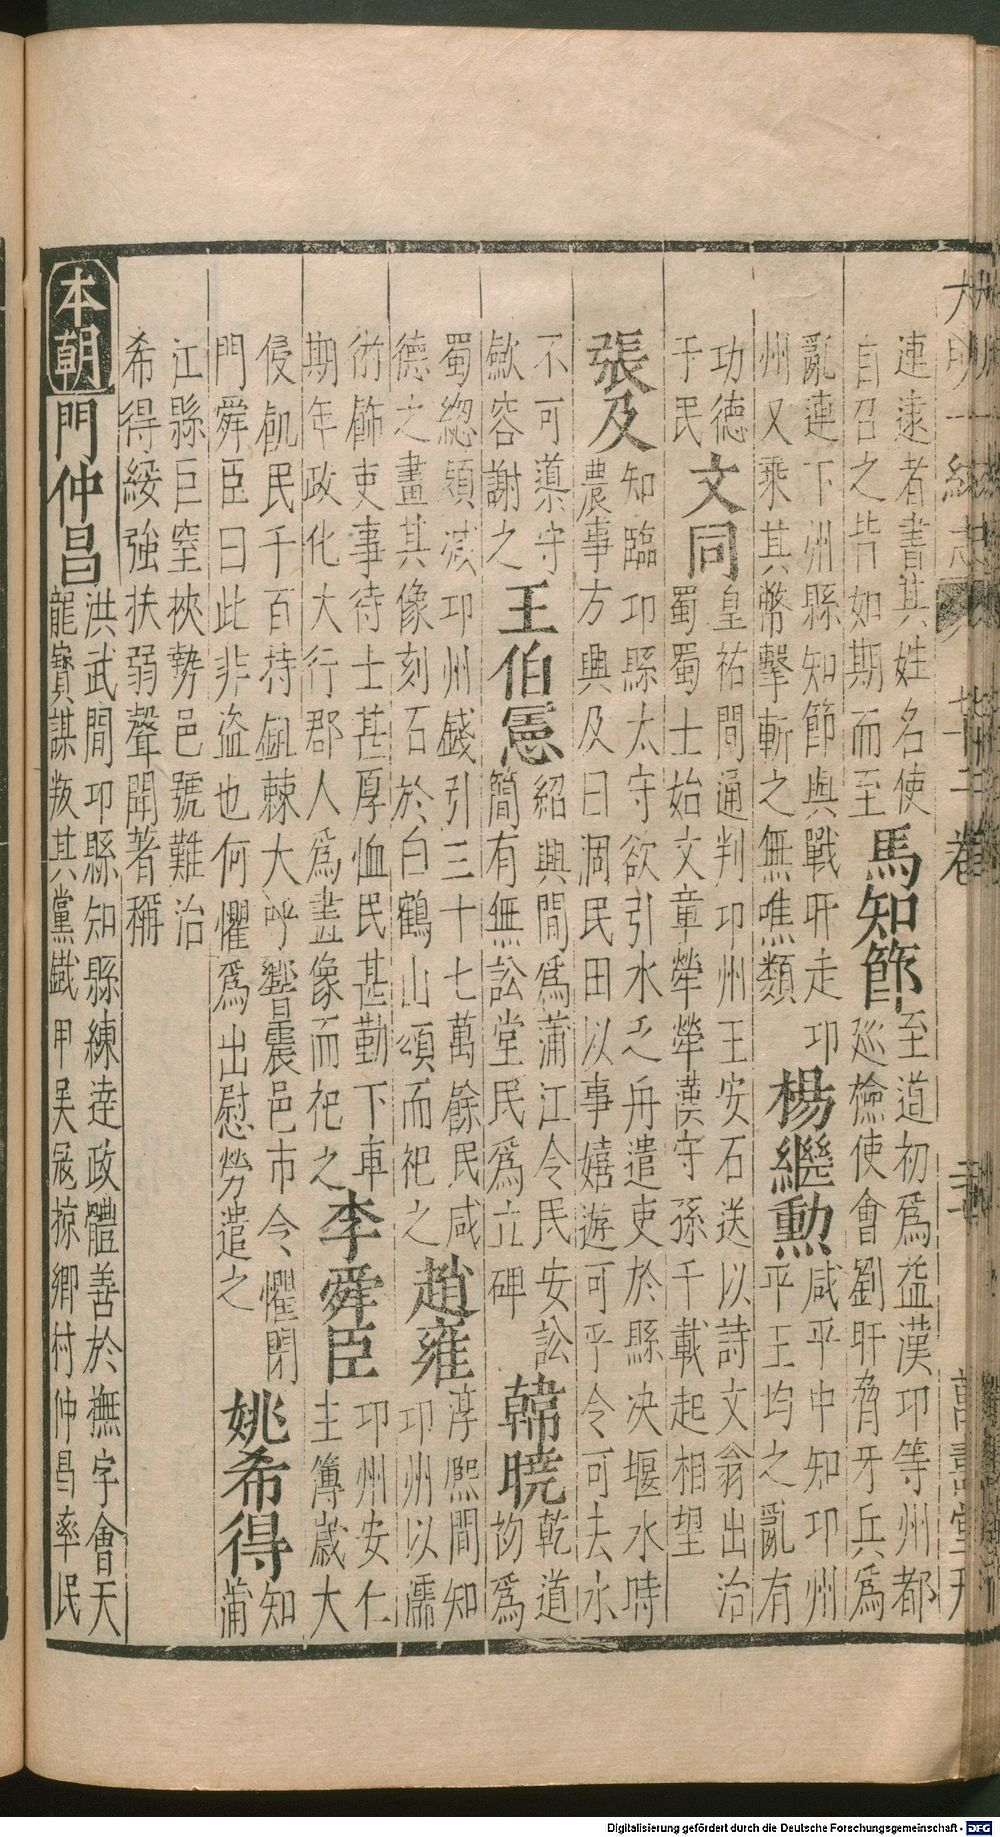 連逮者書其姓名使
自召之皆如期而至
馬知節
至道初為益漢卭等州都
巡檢使會劉旰脅牙兵為
亂連下州縣知節與戰旰走卭
州又乘其幣擊斬之無噍類
楊繼勲
咸平中知卭州
平王均之亂有
功德
于民
文同
皇祐間通判卭州王安石送以詩文翁出治
蜀蜀士始文章犖犖漢守孫千載起相望
張及
知臨卭縣太守欲引水乏舟遣吏於縣决堰水時
農事方興及曰涸民田以事嬉遊可乎令可去水
不可導守
歛容謝之
王伯
紹興間為蒲江令民安訟
簡有無訟堂民為立碑
韓曉
乾道
初為
蜀總領减卭州錢引三十七萬餘民咸
德之畫其像刻石於白鶴山頌而祀之
趙雍
淳熙間知
卭州以儒
術飾吏事待士甚厚恤民甚勤下車
期年政化大行郡人為畫像而祀之
李舜臣
卭州安仁
主簿嵗大
侵飢民千百持鉏棘大呼響震邑市令懼閉
門舜臣曰此非盗也何懼為出慰勞遣之
姚希得
知
蒲
江縣巨室挾勢邑號難治
希得綏強扶弱聲聞著稱
本朝
門仲昌
洪武間卭縣知縣練達政體善於撫字會天
龍寶謀叛其黨鐵甲吴冦掠鄉村仲昌率民
大明一統志
卷
萬壽堂刋
Digitalisierung gefördert durch die Deutsche Forschungsgemeinschaft - DFG